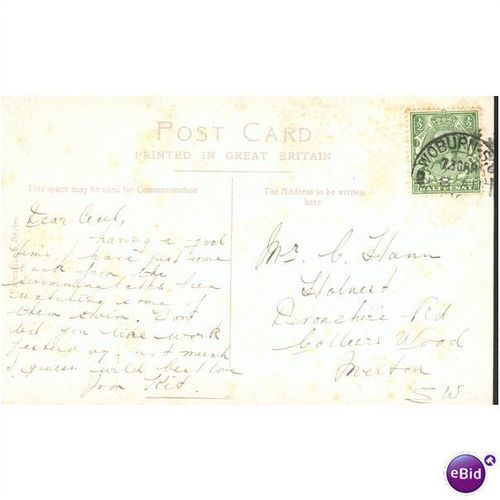 POST CARD
PRINTED IN GREAT BRITAIN
This space may be used for Communication
The Address to be written
here
½ ½
HALFPENNY
WOBURN S.O
7.30 AM
Series
Dear Cecil,
having a good
time, I have just come
back from the
swimming baths, been
watching some of
them swim.
did you like work
not much
I guess with best love
from Kit.
Mr. C. Hann
Holnest
Devonshire Rd
Colliers Wood
Merton
S.W.
eBid